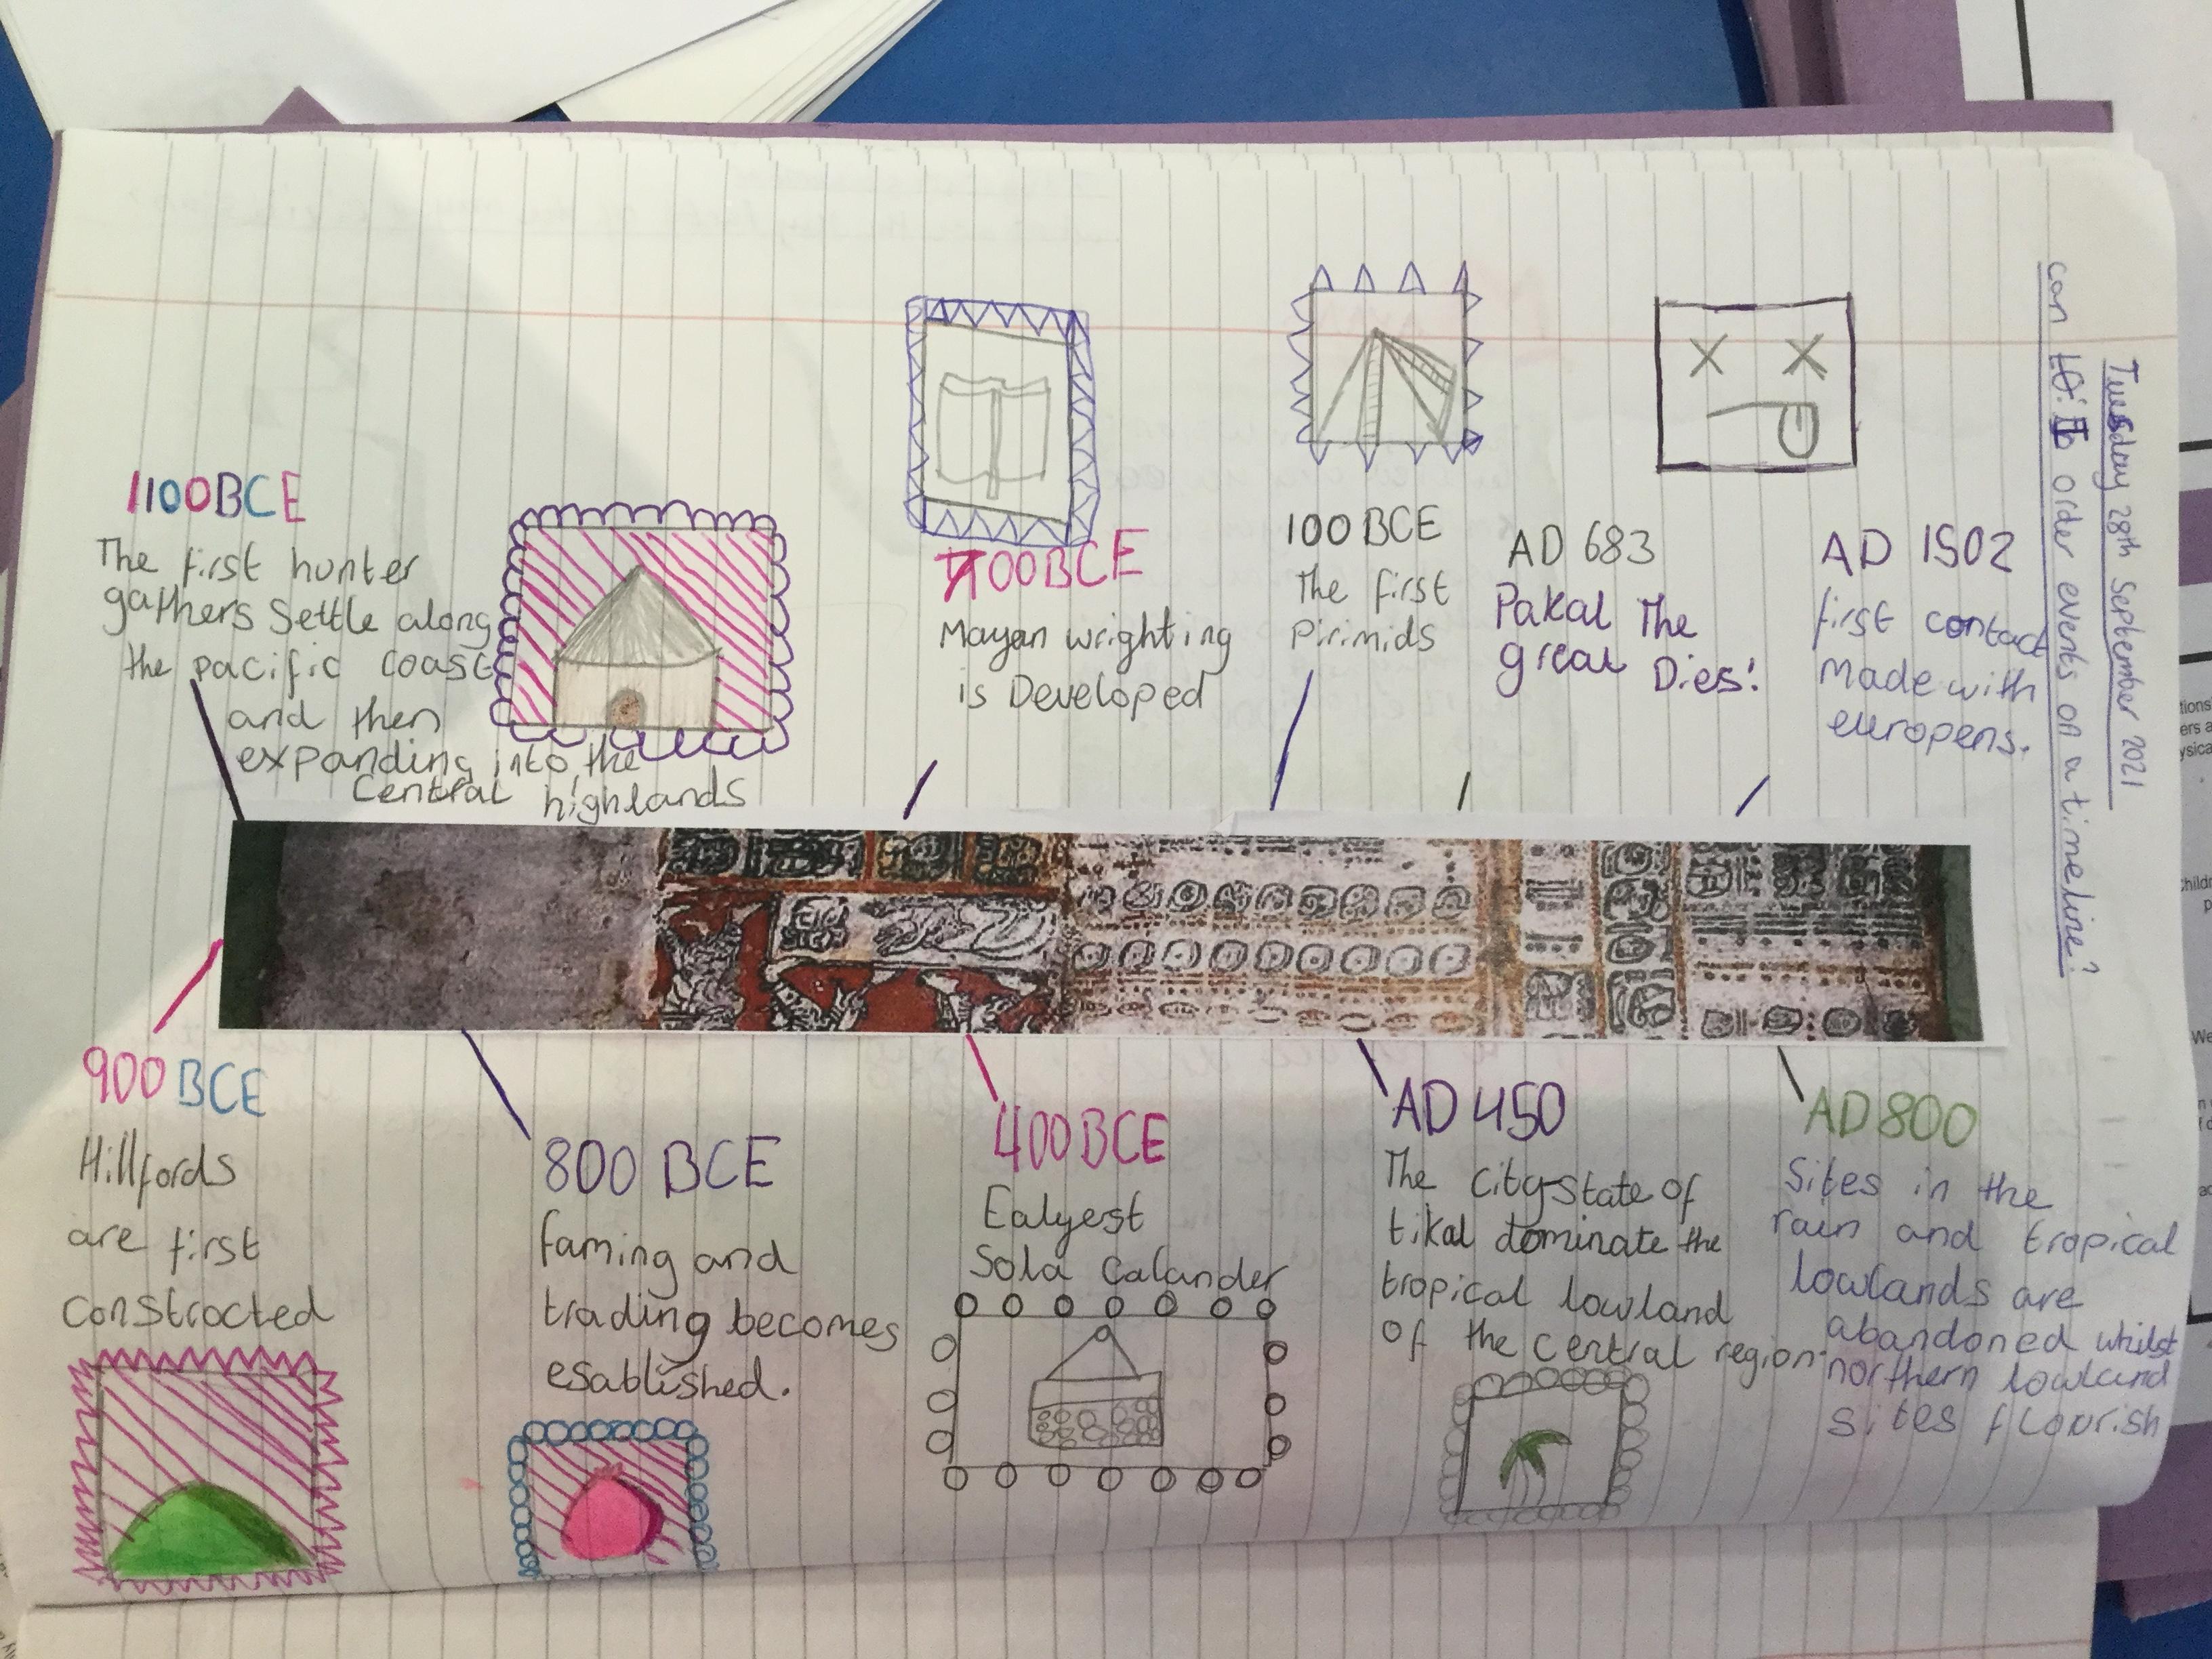 Tuesday 28th September 2021
can LO: To order events on a timeline?
1100BCE
The first hunter
gathers Settle along
the pacific coast
and then
expanding into the
Central highlands
700BCE
Mayan wrighting
is Developed
100 BCE
The first
Pirimids
AD 683
Pakal The
great Dies!
AD 1502
first contact
Made with
europens.
900 BCE
Hillfords
are first
constrocted
800 BCE
faming and
trading becomes
esablished.
400BCE
Ealyest
Sola Calander
AD 450
The City-state of
tikal dominate the
tropical lowland
of the central region.
AD 800
Sites in the
rain and tropical
lowlands are
abandoned whilst
northern lowland
sites flourish